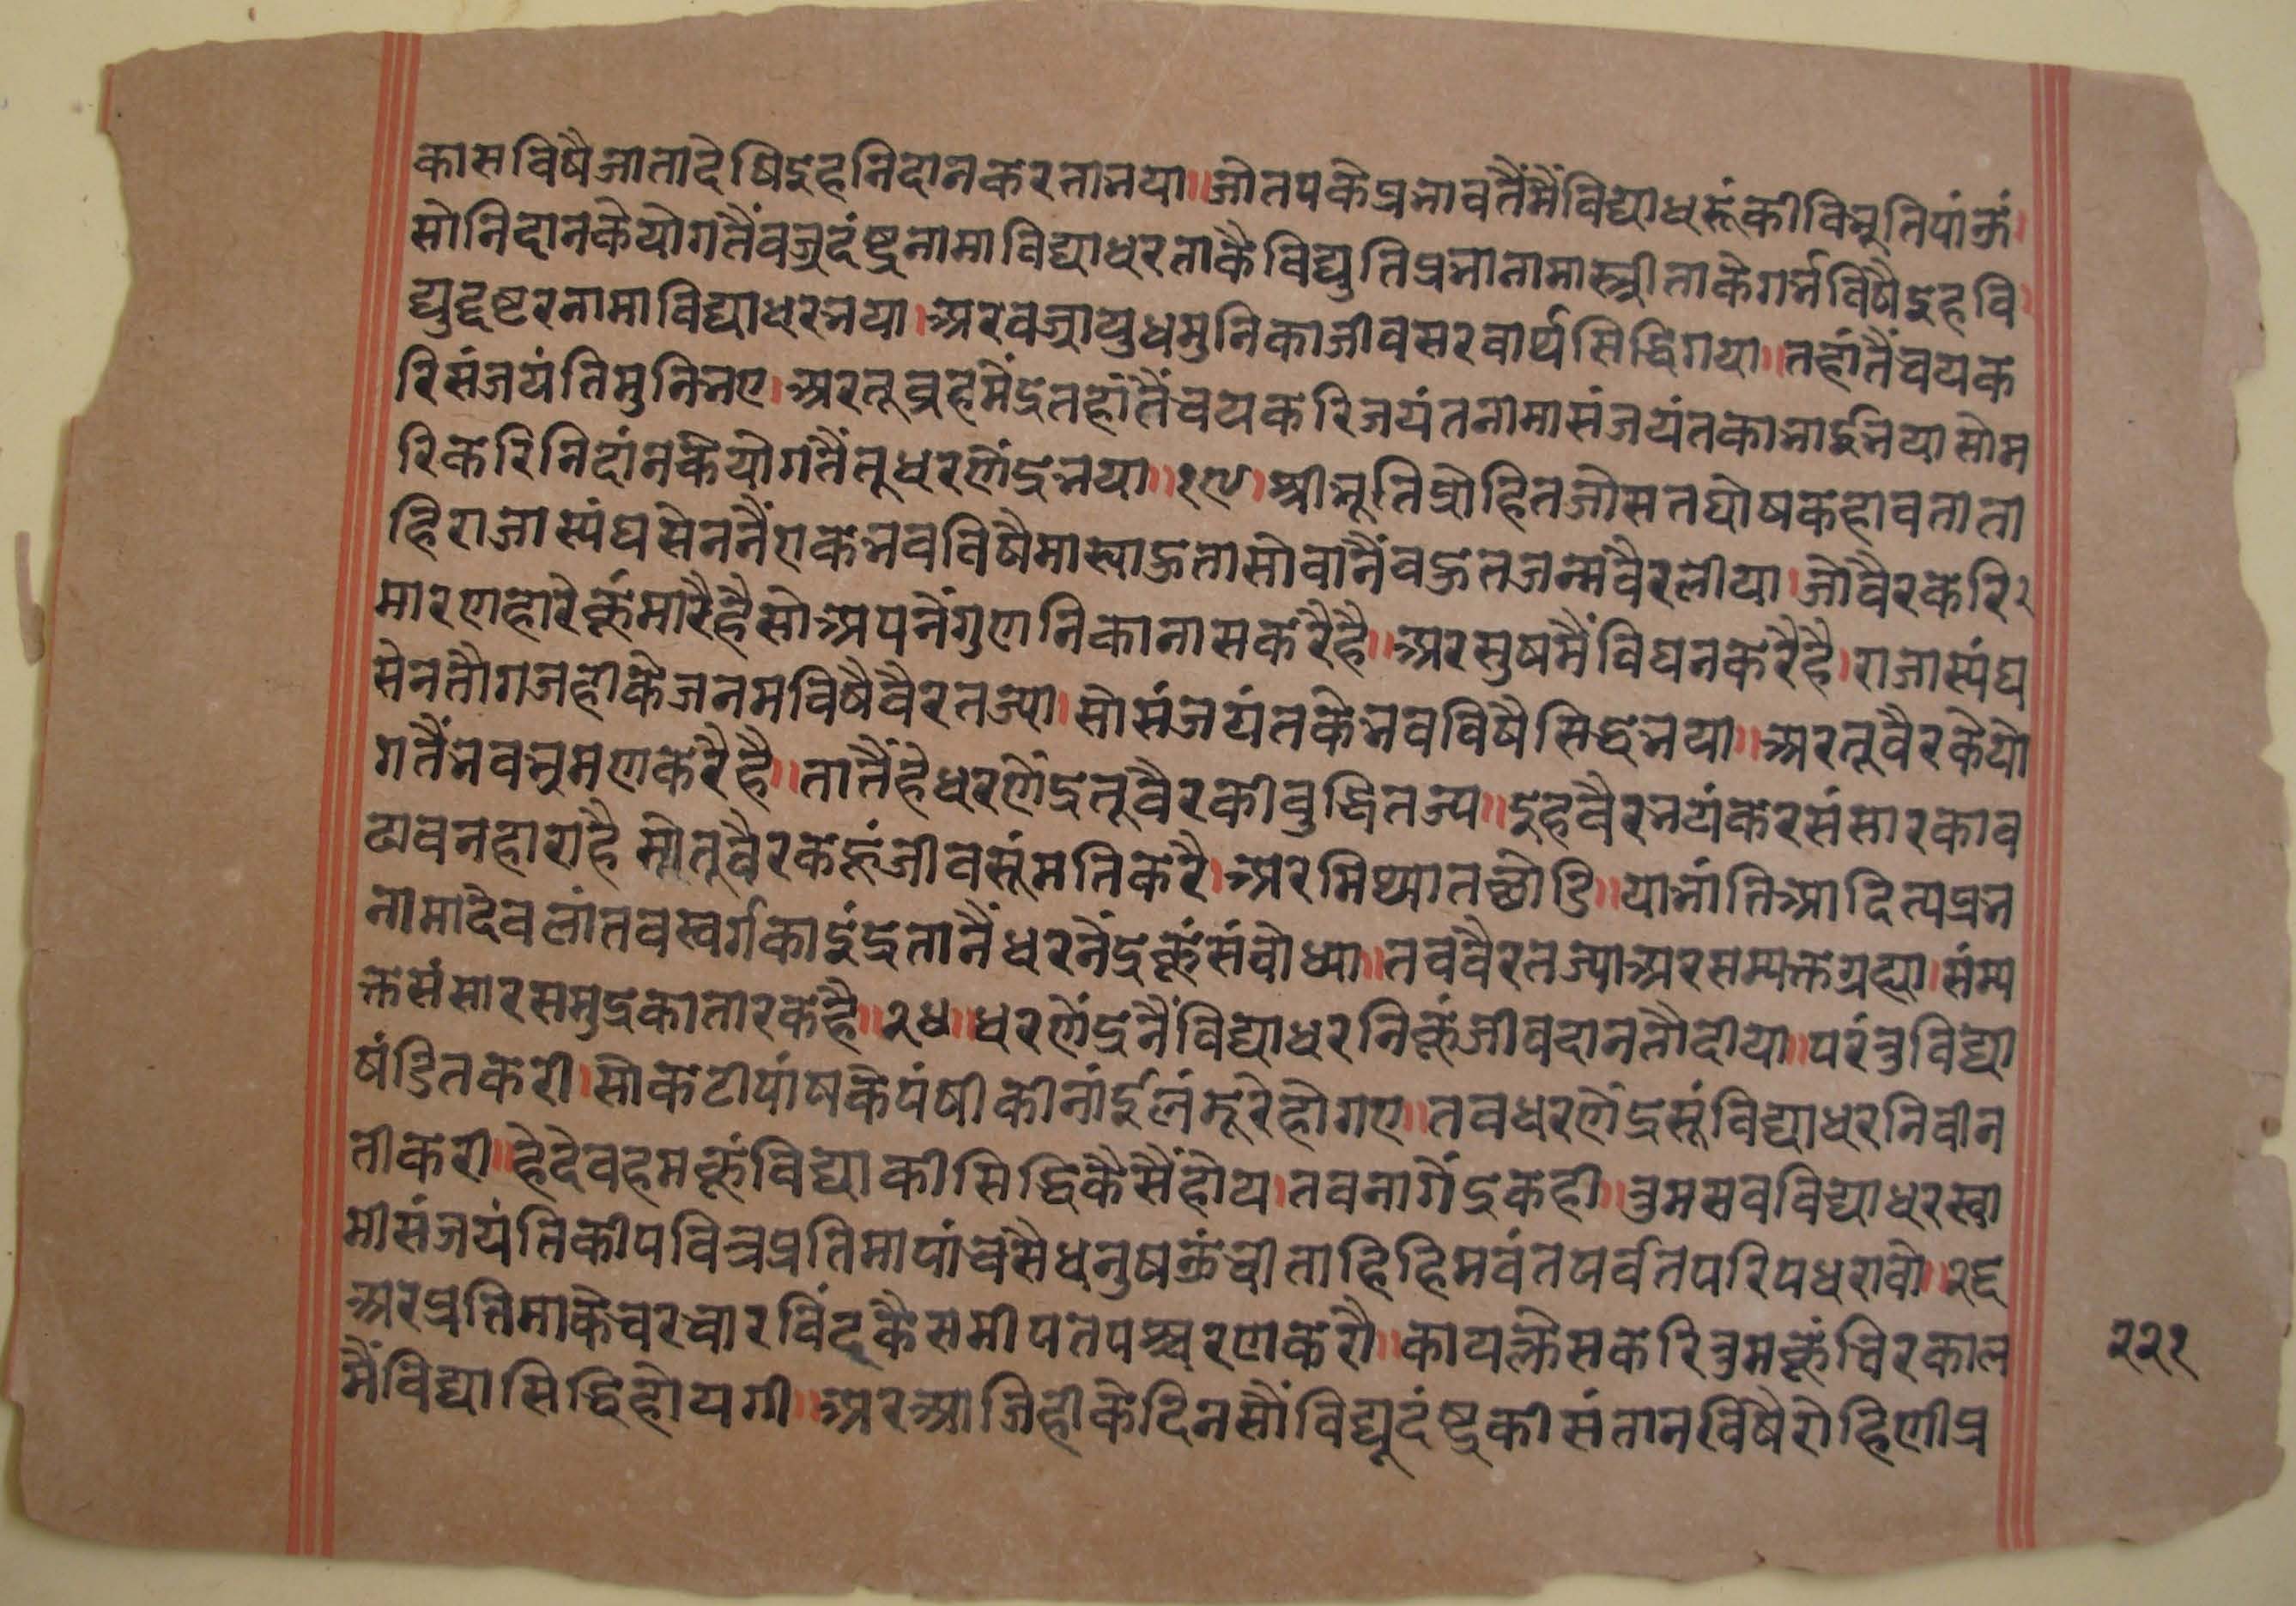 कासविषैजातादेषिइहनिदानकरताभया॥जोतपकेप्रभावतैंमैंविद्याधरूंकीविभूतिपांऊं।
सोनिदानकेयोगतैंवज्रदंष्ट्रनामाविद्याधरताकैविद्युतिप्रभानामास्त्रीताकेगर्भविषैइहवि।
द्युद्दष्टरनामाविद्याधरभया।अरवज्रायुधमुनिकाजीवसरवार्थसिद्धिगया॥तहांतैंचयक
रिसंजयंतिमुनिभए।अरतूब्रहमेंद्रतहांतैंचयकरिजयंतनामासंजयंतकाभाईभयासोम
रिकरिनिदांनकैयोगतैंतूधरणेंद्रभया॥२४।श्रीभूतिप्रोहितजोसतघोषकहावताता
हिराजास्यंघसेननैंएकभवविषैमास्याहुतासोवानैंवहुतजन्मवैरलीया।जोवैरकरि२
मारणहारेकूंमारैहैसोअपनेंगुणनिकानासकरैहै॥अरसुषमैंविघनकरैहै।राजास्यंघ
सेनतौगजहीकैजनमविषैवैरतज्या।सोसंजयंतकैभवविषैसिद्धभया॥अरतूवैरकेयो
गतैंभवभ्रमणकरैहै॥तातैंहेधरणेंद्रतूवैरकीवुद्धितज्य॥इहवैरभयंकरसंसारकाव
ढावनहाराहैसोतूवैरकहूंजीवसूंमतिकरै।अरमिथ्यातछोडि॥याभांतिआदित्यप्रभ
नामादेवलांतवस्वर्गकाइंद्रतानैंधरनेंद्रकूंसंवोध्या॥तववैरतज्याअरसम्यक्तग्रह्या।संम्य
क्तसंसारसमुद्रकातारकहै॥२५॥धरणेंद्रनैंविद्याधरनिकूंजीवदानतौदीया॥परंतुविद्या
षंडितकरी।सोकटीपांषकेपंषीकीनांईलंडूरेहोगए॥तवधरणेंद्रसूंविद्याधरनिवीन
तीकरी॥हेदेवहमकूंविद्याकीसिद्धिकैसैंहोय।तवनागेंद्रकही॥तुमसवविद्याधरस्वा
मीसंजयंतिकीपवित्रप्रतिमापांचसैधनुषऊंचीताहिहिमवंतपर्वतपरिपधरावो॥२६
अरप्रतिमाकेचरचारविंदकैसमीपतपश्चरणकरौ॥कायक्लेसकरितुमकूंचिरकाल
मैंविद्यासिद्धिहोयगी॥अरआजिहीकेदिनसौंविद्यूदंष्ट्रकीसंतानविषैरोहिणीप्र
२२१